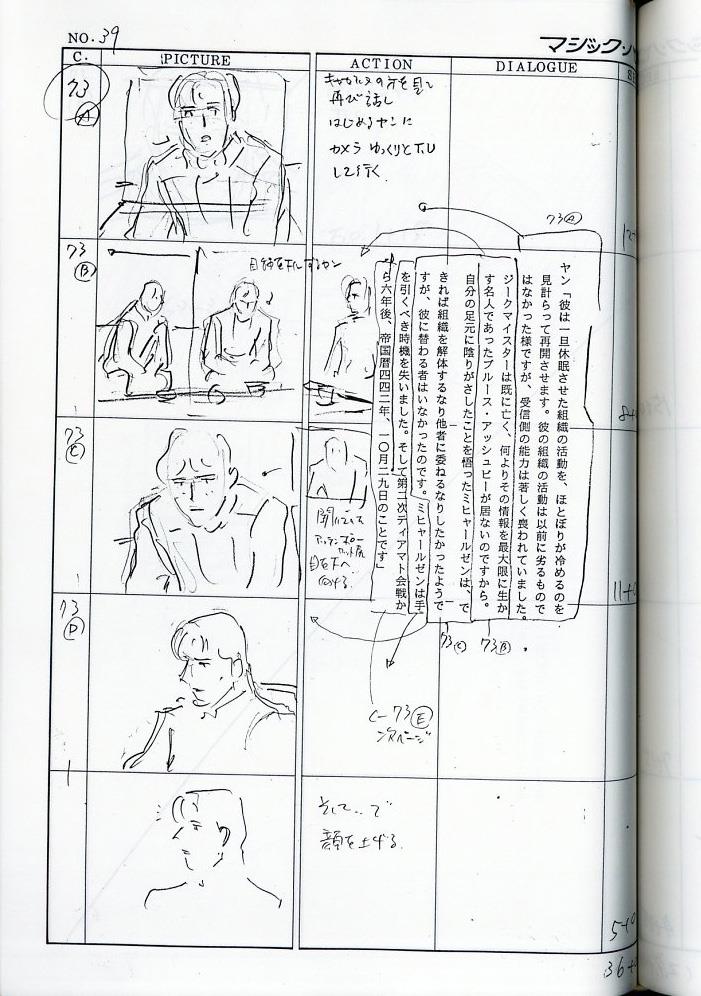 NO. 39
マジック・バ
C.
PICTURE
ACTION
DIALOGUE
73
A
再び話し
はじめるヤンに
カメラ ゆっくりとT.U
して行く
73 A
73
B
目線を下にするヤン
ヤン「彼は一旦休眠させた組織の活動を、ほとぼりが冷めるのを
見計らって再開させます。彼の組織の活動は以前に劣るもので
はなかった様ですが、受信側の能力は著しく喪われていました。
ジークマイスターは既に亡く、何よりその情報を最大限に生か
す名人であったブルース・アッシュビーが居ないのですから。
自分の足元に陰りがさしたことを悟ったミヒャールゼンは、で
きれば組織を解体するなり他者に委ねるなりしたかったようで
すが、彼に替わる者はいなかったのです。ミヒャールゼンは手
を引くべき時機を失いました。そして第二次ティアマト会戦か
ら六年後、帝国暦四四二年、一〇月二九日のことです」
73
C
目を下へ
向ける
11+0
73 C
73 B
73
D
73 E
次ページ
そして‥で
顔を上げる
5+0
36+